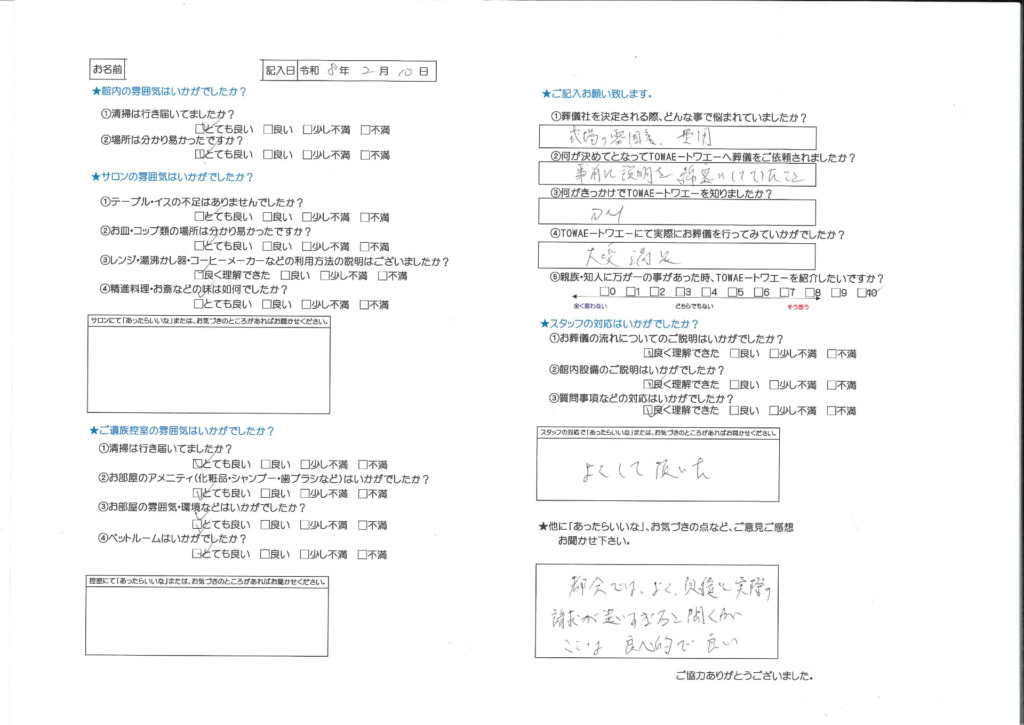 お名前
記入日 令和 8年 2月 10日
★館内の雰囲気はいかがでしたか？
①清掃は行き届いてましたか？
☑とても良い □良い □少し不満 □不満
②場所は分かり易かったですか？
☑とても良い □良い □少し不満 □不満
★サロンの雰囲気はいかがでしたか？
①テーブル・イスの不足はありませんでしたか？
☑とても良い □良い □少し不満 □不満
②お皿・コップ類の場所は分かり易かったですか？
☑とても良い □良い □少し不満 □不満
③レンジ・湯沸かし器・コーヒーメーカーなどの利用方法の説明はございましたか？
☑良く理解できた □良い □少し不満 □不満
④精進料理・お斎などの味は如何でしたか？
☑とても良い □良い □少し不満 □不満
サロンにて「あったらいいな」または、お気づきのところがあればお聞かせください。
★ご遺族控室の雰囲気はいかがでしたか？
①清掃は行き届いてましたか？
☑とても良い □良い □少し不満 □不満
②お部屋のアメニティ(化粧品・シャンプー・歯ブラシなど)はいかがでしたか？
☑とても良い □良い □少し不満 □不満
③お部屋の雰囲気・環境などはいかがでしたか？
☑とても良い □良い □少し不満 □不満
④ベットルームはいかがでしたか？
☑とても良い □良い □少し不満 □不満
控室にて「あったらいいな」または、お気づきのところがあればお聞かせください。
★ご記入お願い致します。
①葬儀社を決定される際、どんな事で悩まれていましたか？
式場の雰囲気、費用
②何が決めてとなってTOWAEートワエーへ葬儀をご依頼されましたか？
事前に説明を 綺麗にしていたこと
③何がきっかけでTOWAEートワエーを知りましたか？
DM
④TOWAEートワエーにて実際にお葬儀を行ってみていかがでしたか？
大変 満足
⑤親族・知人に万が一の事があった時、TOWAEートワエーを紹介したいですか？
□0 □1 □2 □3 □4 □5 □6 □7 □8 □9 ☑10
全く思わない どちらでもない そう思う
★スタッフの対応はいかがでしたか？
①お葬儀の流れについてのご説明はいかがでしたか？
☑良く理解できた □良い □少し不満 □不満
②館内設備のご説明はいかがでしたか？
☑良く理解できた □良い □少し不満 □不満
③質問事項などの対応はいかがでしたか？
☑良く理解できた □良い □少し不満 □不満
スタッフの対応で「あったらいいな」または、お気づきのところがあればお聞かせください。
よくして頂いた
★他に「あったらいいな」、お気づきの点など、ご意見ご感想
お聞かせ下さい。
都会では、よく、見積と実際の
請求が違いすぎると聞くが
ここは 良心的で良い
ご協力ありがとうございました。